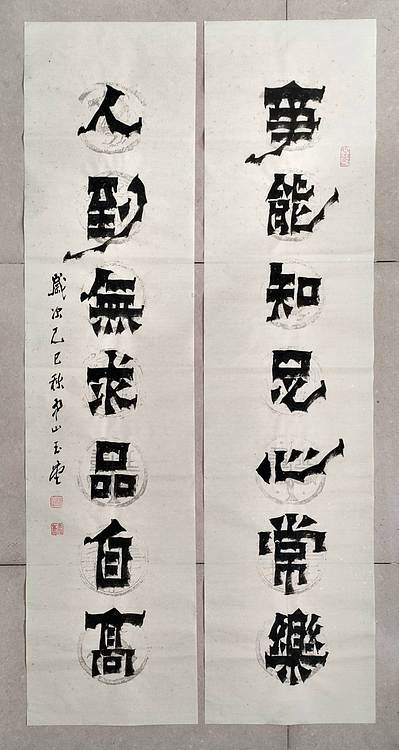 事能知足心常樂
人到無求品自高
歲次乙巳秋山玉